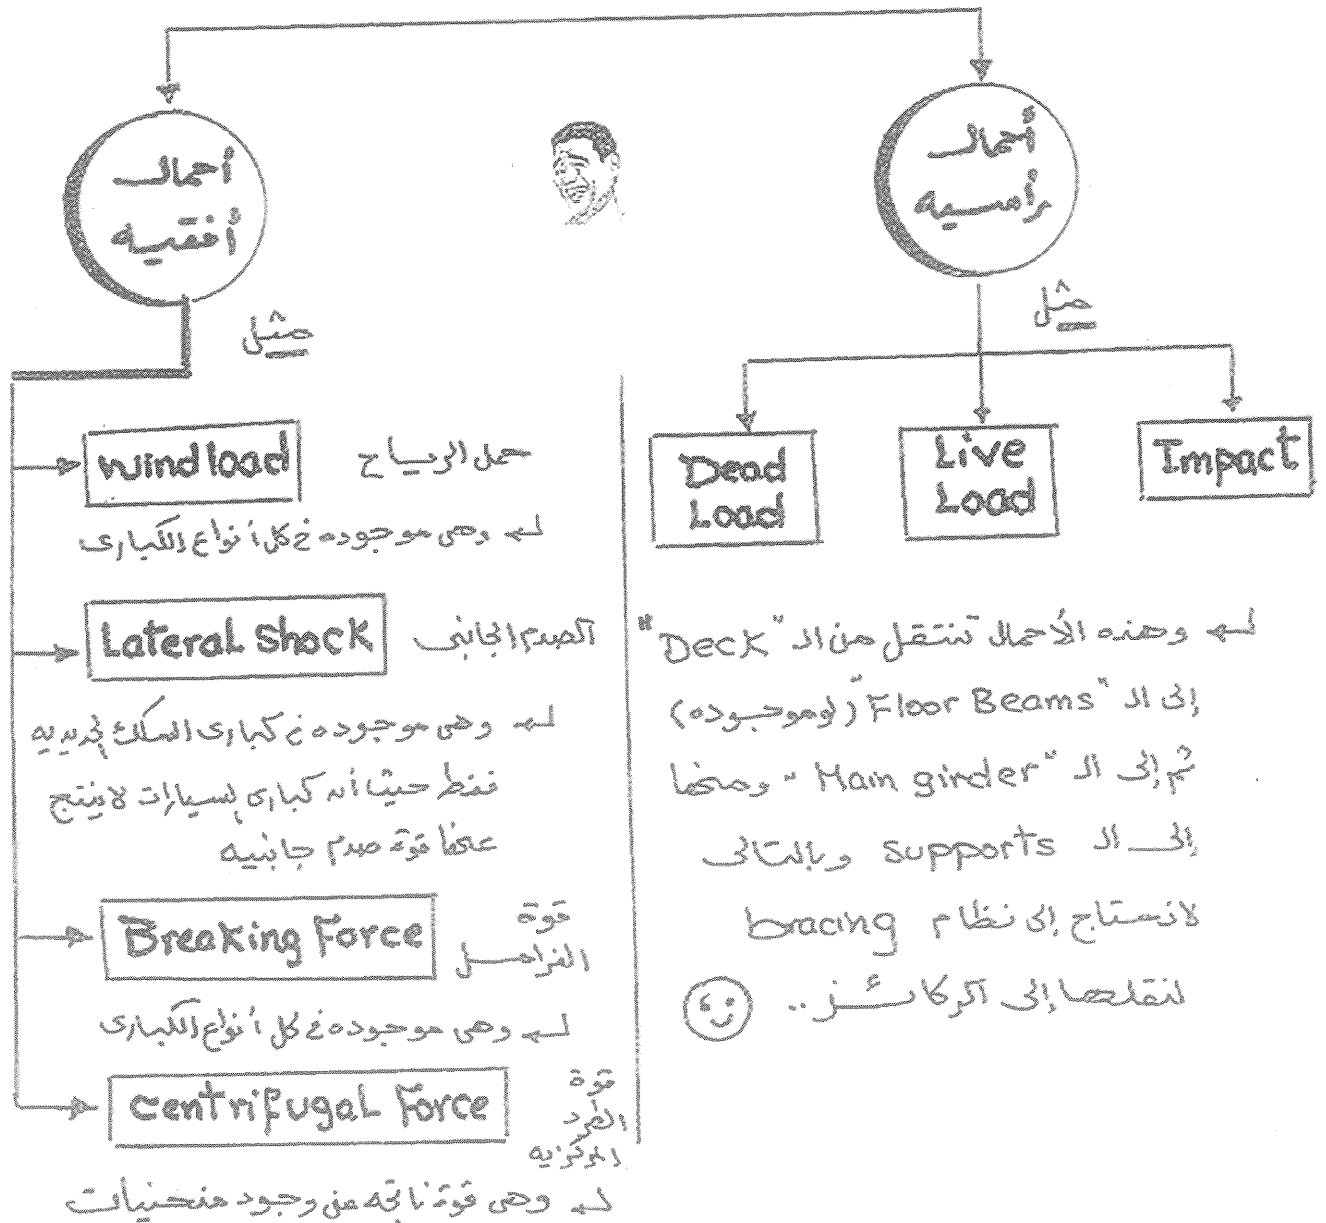 أحمال
رأسيه
مثل
Impact
Live
Load
Dead
Load
وهذه الأحمال تنتقل من الـ "Deck"
إلى الـ "Floor Beams" (لو موجوده)
ثم إلى الـ "Main girder" ومنها
إلى الـ supports وبالتالى
لا نحتاج إلى نظام bracing
لنقلها إلى الركائز ..
أحمال
أفقيه
مثل
wind load حمل الرياح
وهى موجوده فى كل أنواع الكبارى
Lateral Shock الصدم الجانبى
وهى موجوده فى كبارى السكك الحديديه
فقط حيث أن كبارى السيارات لا ينتج
عنها قوة صدم جانبيه
Breaking Force قوة
الفرامل
وهى موجوده فى كل أنواع الكبارى
Centrifugal Force قوة
الطرد
المركزيه
وهى قوة ناتجه عن وجود منحنيات